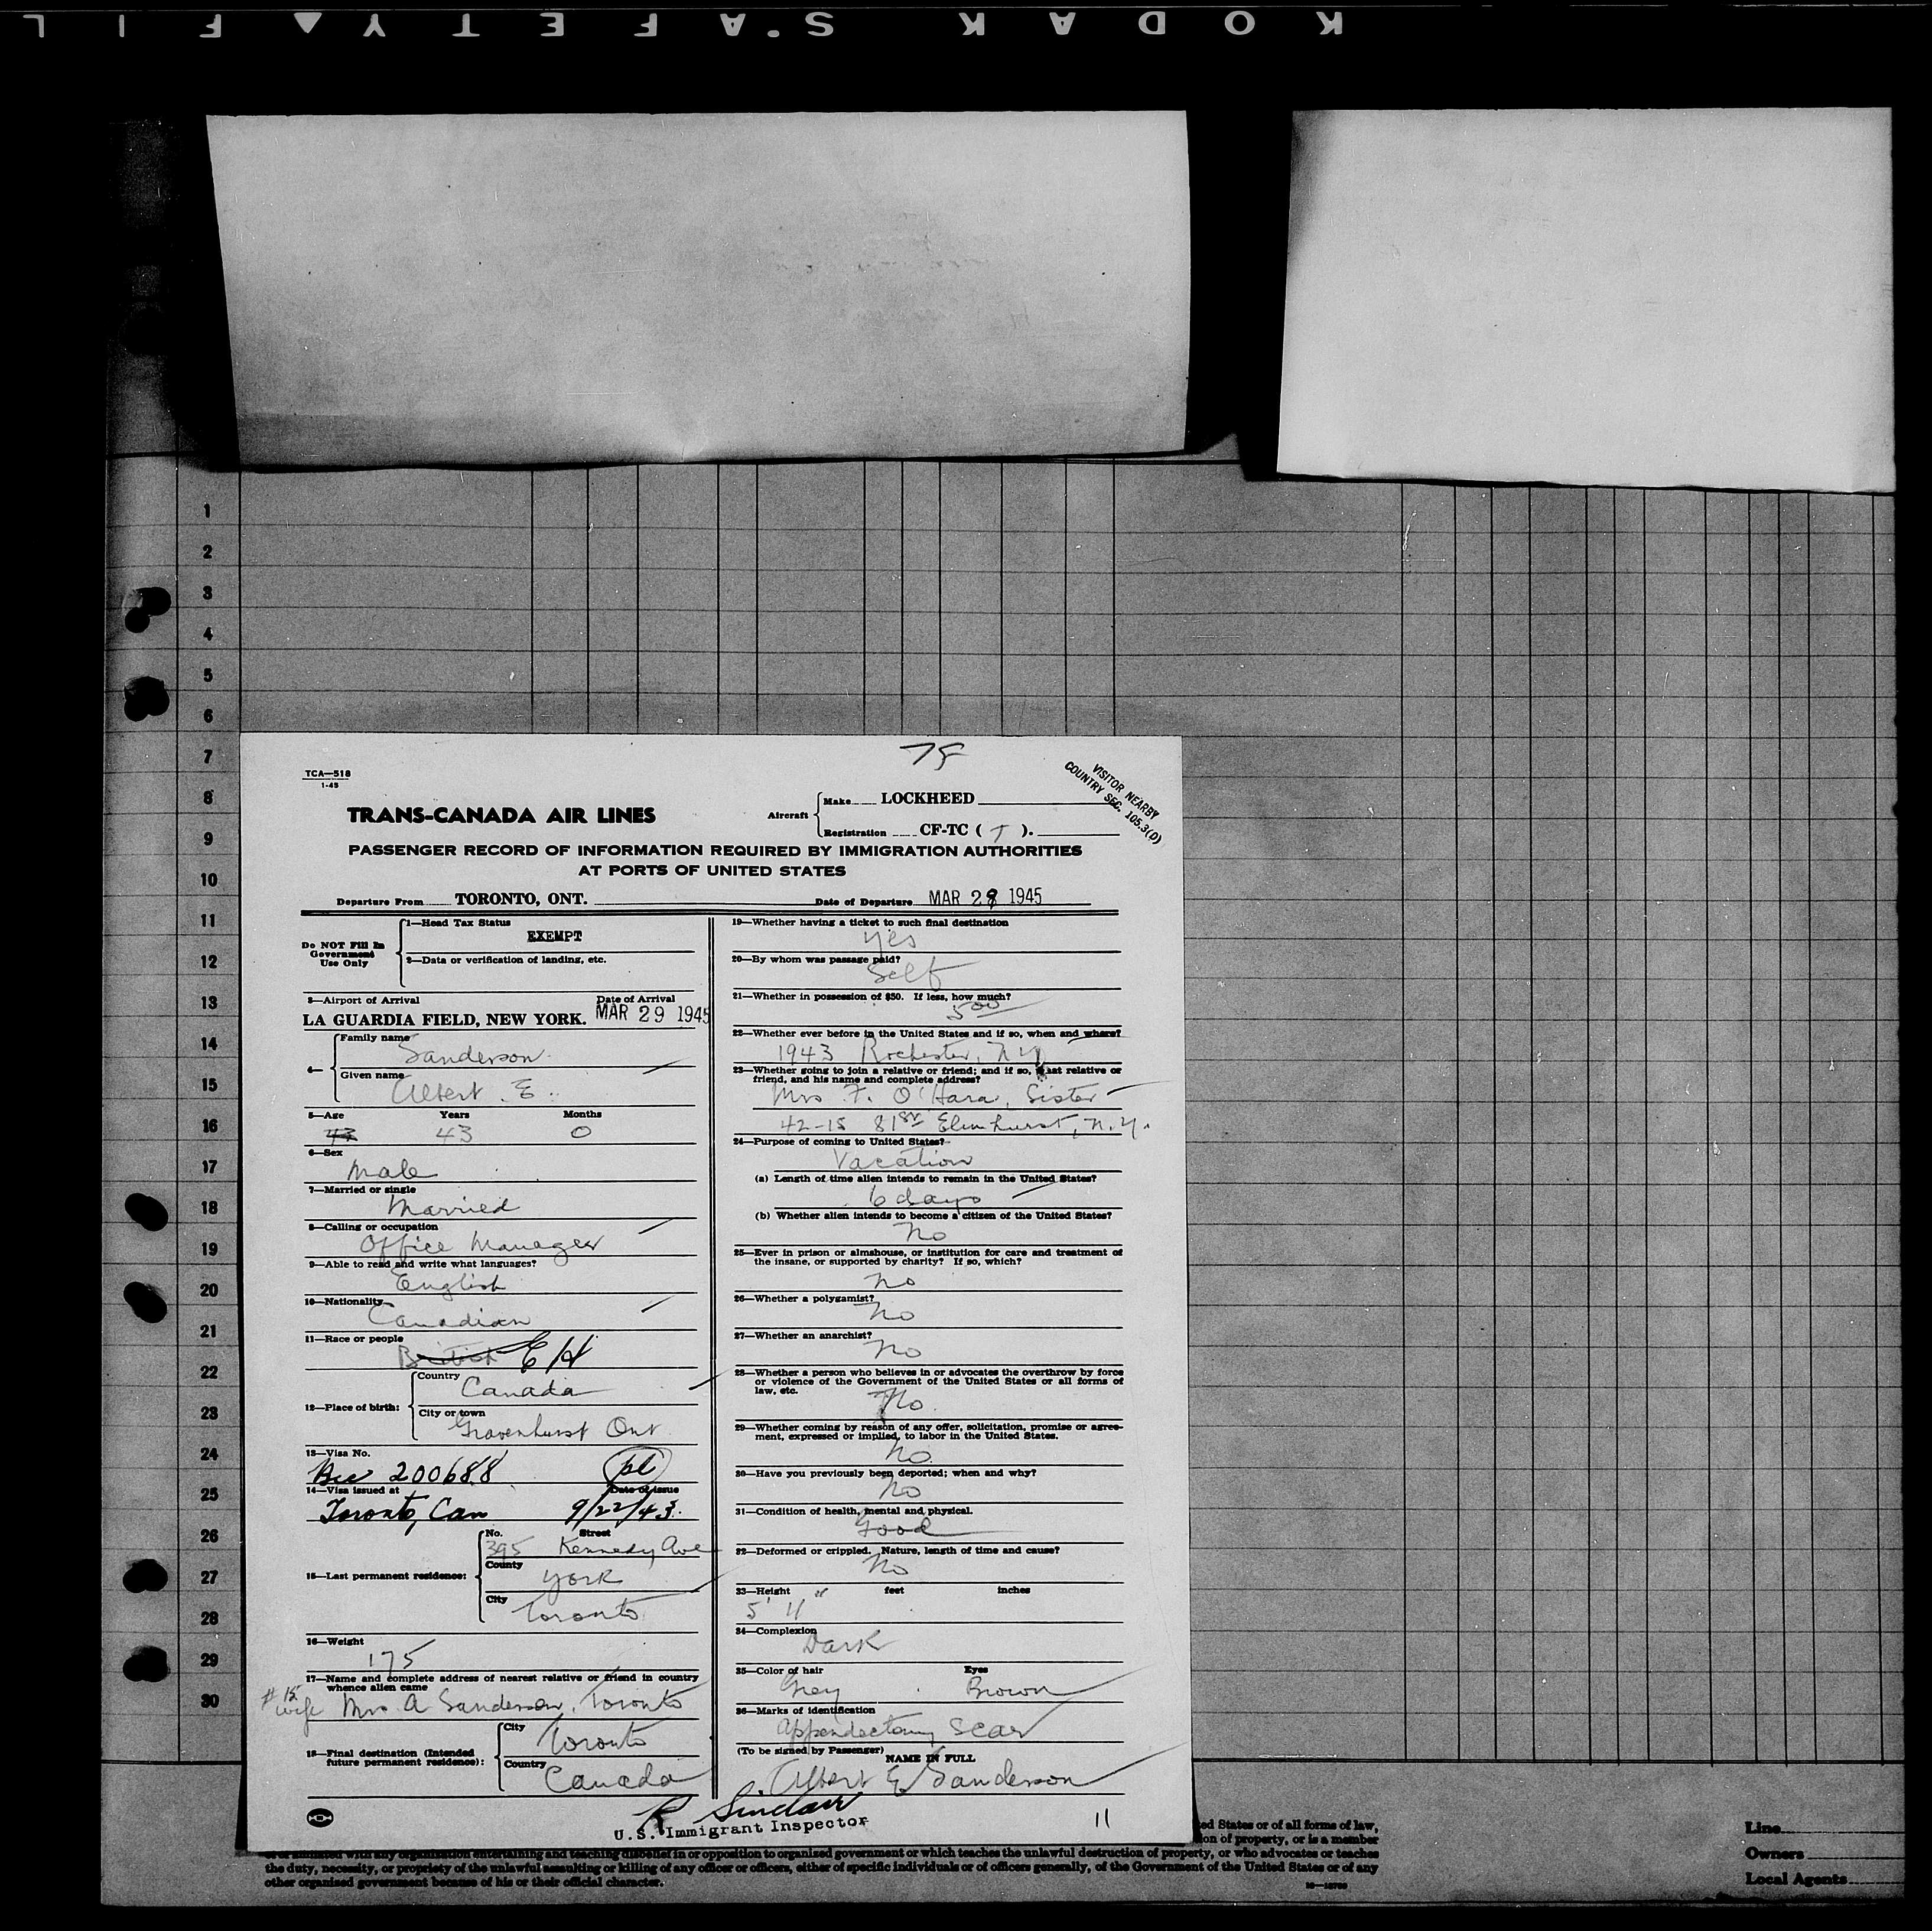 KODAK S'AFETY FIL
1
2
3
4
5
6
7
8
9
10
11
12
13
14
15
16
17
18
19
20
21
22
23
24
25
26
27
28
29
30
TCA—518
1-45
VISITOR NEARBY
COUNTRY SEC. 105.3(D)
TRANS-CANADA AIR LINES
Aircraft
Make LOCKHEED
Registration CF-TC ( T ).
PASSENGER RECORD OF INFORMATION REQUIRED BY IMMIGRATION AUTHORITIES
AT PORTS OF UNITED STATES
Departure From TORONTO, ONT. Date of Departure MAR 29 1945
Do NOT Fill In
Government
Use Only
1—Head Tax Status
EXEMPT
2—Data or verification of landing, etc.
3—Airport of Arrival Date of Arrival
LA GUARDIA FIELD, NEW YORK. MAR 29 1945
4—
Family name
Sanderson
Given name
Albert E.
5—Age Years Months
43 43 0
6—Sex
Male
7—Married or single
Married
8—Calling or occupation
Office Manager
9—Able to read and write what languages?
English
10—Nationality
Canadian
11—Race or people
British
12—Place of birth:
Country
Canada
City or town
Gravenhurst Ont
13—Visa No.
200688
14—Visa issued at Date of issue
Toronto, Can 9/22/43.
15—Last permanent residence:
No. Street
395 Kennedy Ave
County
York
City
Toronto
16—Weight
175
17—Name and complete address of nearest relative or friend in country
whence alien came
# 15
wife Mrs A Sanderson, Toronto
18—Final destination (Intended
future permanent residence):
City
Toronto
Country
Canada
19—Whether having a ticket to such final destination
yes
20—By whom was passage paid?
Self
21—Whether in possession of $50. If less, how much?
500
22—Whether ever before in the United States and if so, when and where?
1943 Rochester, N.Y.
23—Whether going to join a relative or friend; and if so, what relative or
friend, and his name and complete address?
Mrs F. O'Hara, Sister
42-15 81st Elmhurst, N.Y.
24—Purpose of coming to United States?
Vacation
(a) Length of time alien intends to remain in the United States?
6 days
(b) Whether alien intends to become a citizen of the United States?
No
25—Ever in prison or almshouse, or institution for care and treatment of
the insane, or supported by charity? If so, which?
No
26—Whether a polygamist?
No
27—Whether an anarchist?
No
28—Whether a person who believes in or advocates the overthrow by force
or violence of the Government of the United States or all forms of
law, etc.
No.
29—Whether coming by reason of any offer, solicitation, promise or agree-
ment, expressed or implied, to labor in the United States.
No.
30—Have you previously been deported; when and why?
No
31—Condition of health, mental and physical.
Good
32—Deformed or crippled. Nature, length of time and cause?
No
33—Height feet inches
5' 11"
34—Complexion
Dark
35—Color of hair Eyes
Grey Brown
36—Marks of identification
Appendectomy Scar
(To be signed by Passenger)
NAME IN FULL
Albert E Sanderson
R Sinclair
U.S. Immigrant Inspector
11
ed States or of all forms of law,
on of property, or is a member
or affiliated with any organization entertaining and teaching disbelief in or opposition to organized government or which teaches the unlawful destruction of property, or who advocates or teaches
the duty, necessity, or propriety of the unlawful assaulting or killing of any officer or officers, either of specific individuals or of officers generally, of the Government of the United States or of any
other organized government because of his or their official character.
Line
Owners
Local Agents